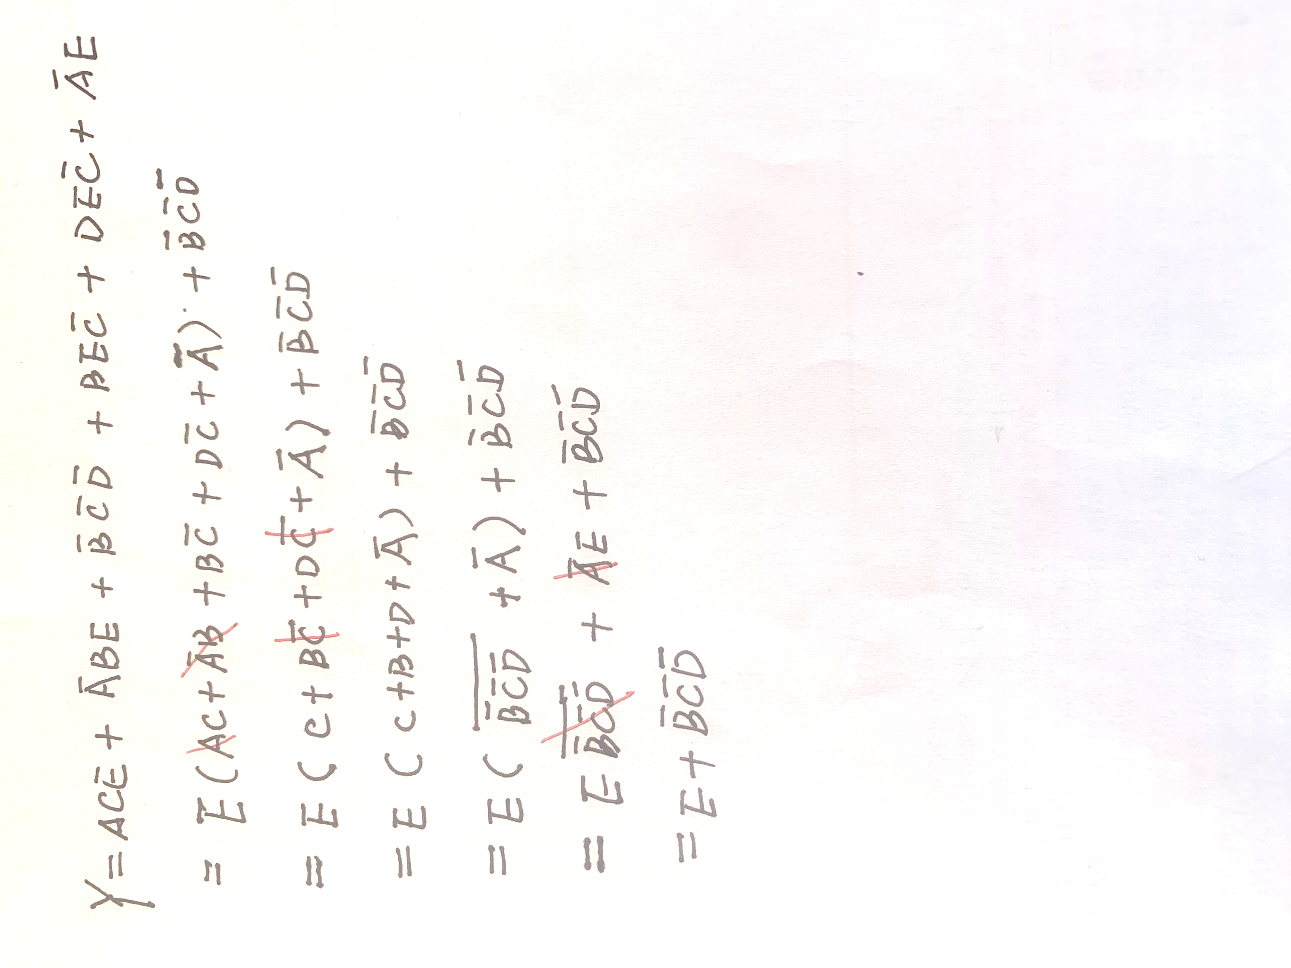 Y = ACE̅ + A̅BE + B̅C̅D̅ + BE̅C̅ + DE̅C̅ + A̅E
= E̅(AC + A̅B + BC̅ + DC̅ + A̅) + B̅C̅D̅
= E̅(C + BC̅ + DC̅ + A̅) + B̅C̅D̅
= E(C+B+D+A̅) + B̅C̅D̅
= E(\overline{B̅C̅D̅} + A̅) + B̅C̅D̅
= E\overline{B̅C̅D̅} + A̅E + B̅C̅D̅
= E + B̅C̅D̅